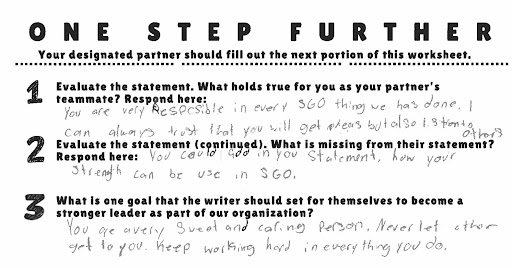 ONE STEP FURTHER
Your designated partner should fill out the next portion of this worksheet.
1 Evaluate the statement. What holds true for you as your partner's
teammate? Respond here:
You are very Resposible in every SGO thing we has done. I
can always trust that you will get ideas but also
others
2 Evaluate the statement (continued). What is missing from their statement?
Respond here: You could add in you Statement, how your
Strength can be use in SGO.
3 What is one goal that the writer should set for themselves to become a
stronger leader as part of our organization?
You are a very Sweet and caring Person. Never let other
get to you. Keep working hard in everything you do.